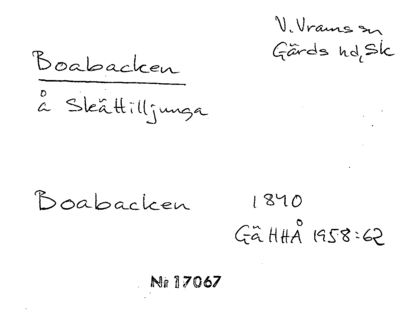 V. Vrams sn
Gärds hd, Sk
Boabacken
å Skättilljunga
Boabacken 1840
Gä HHÅ 1958:62
Nr 17067